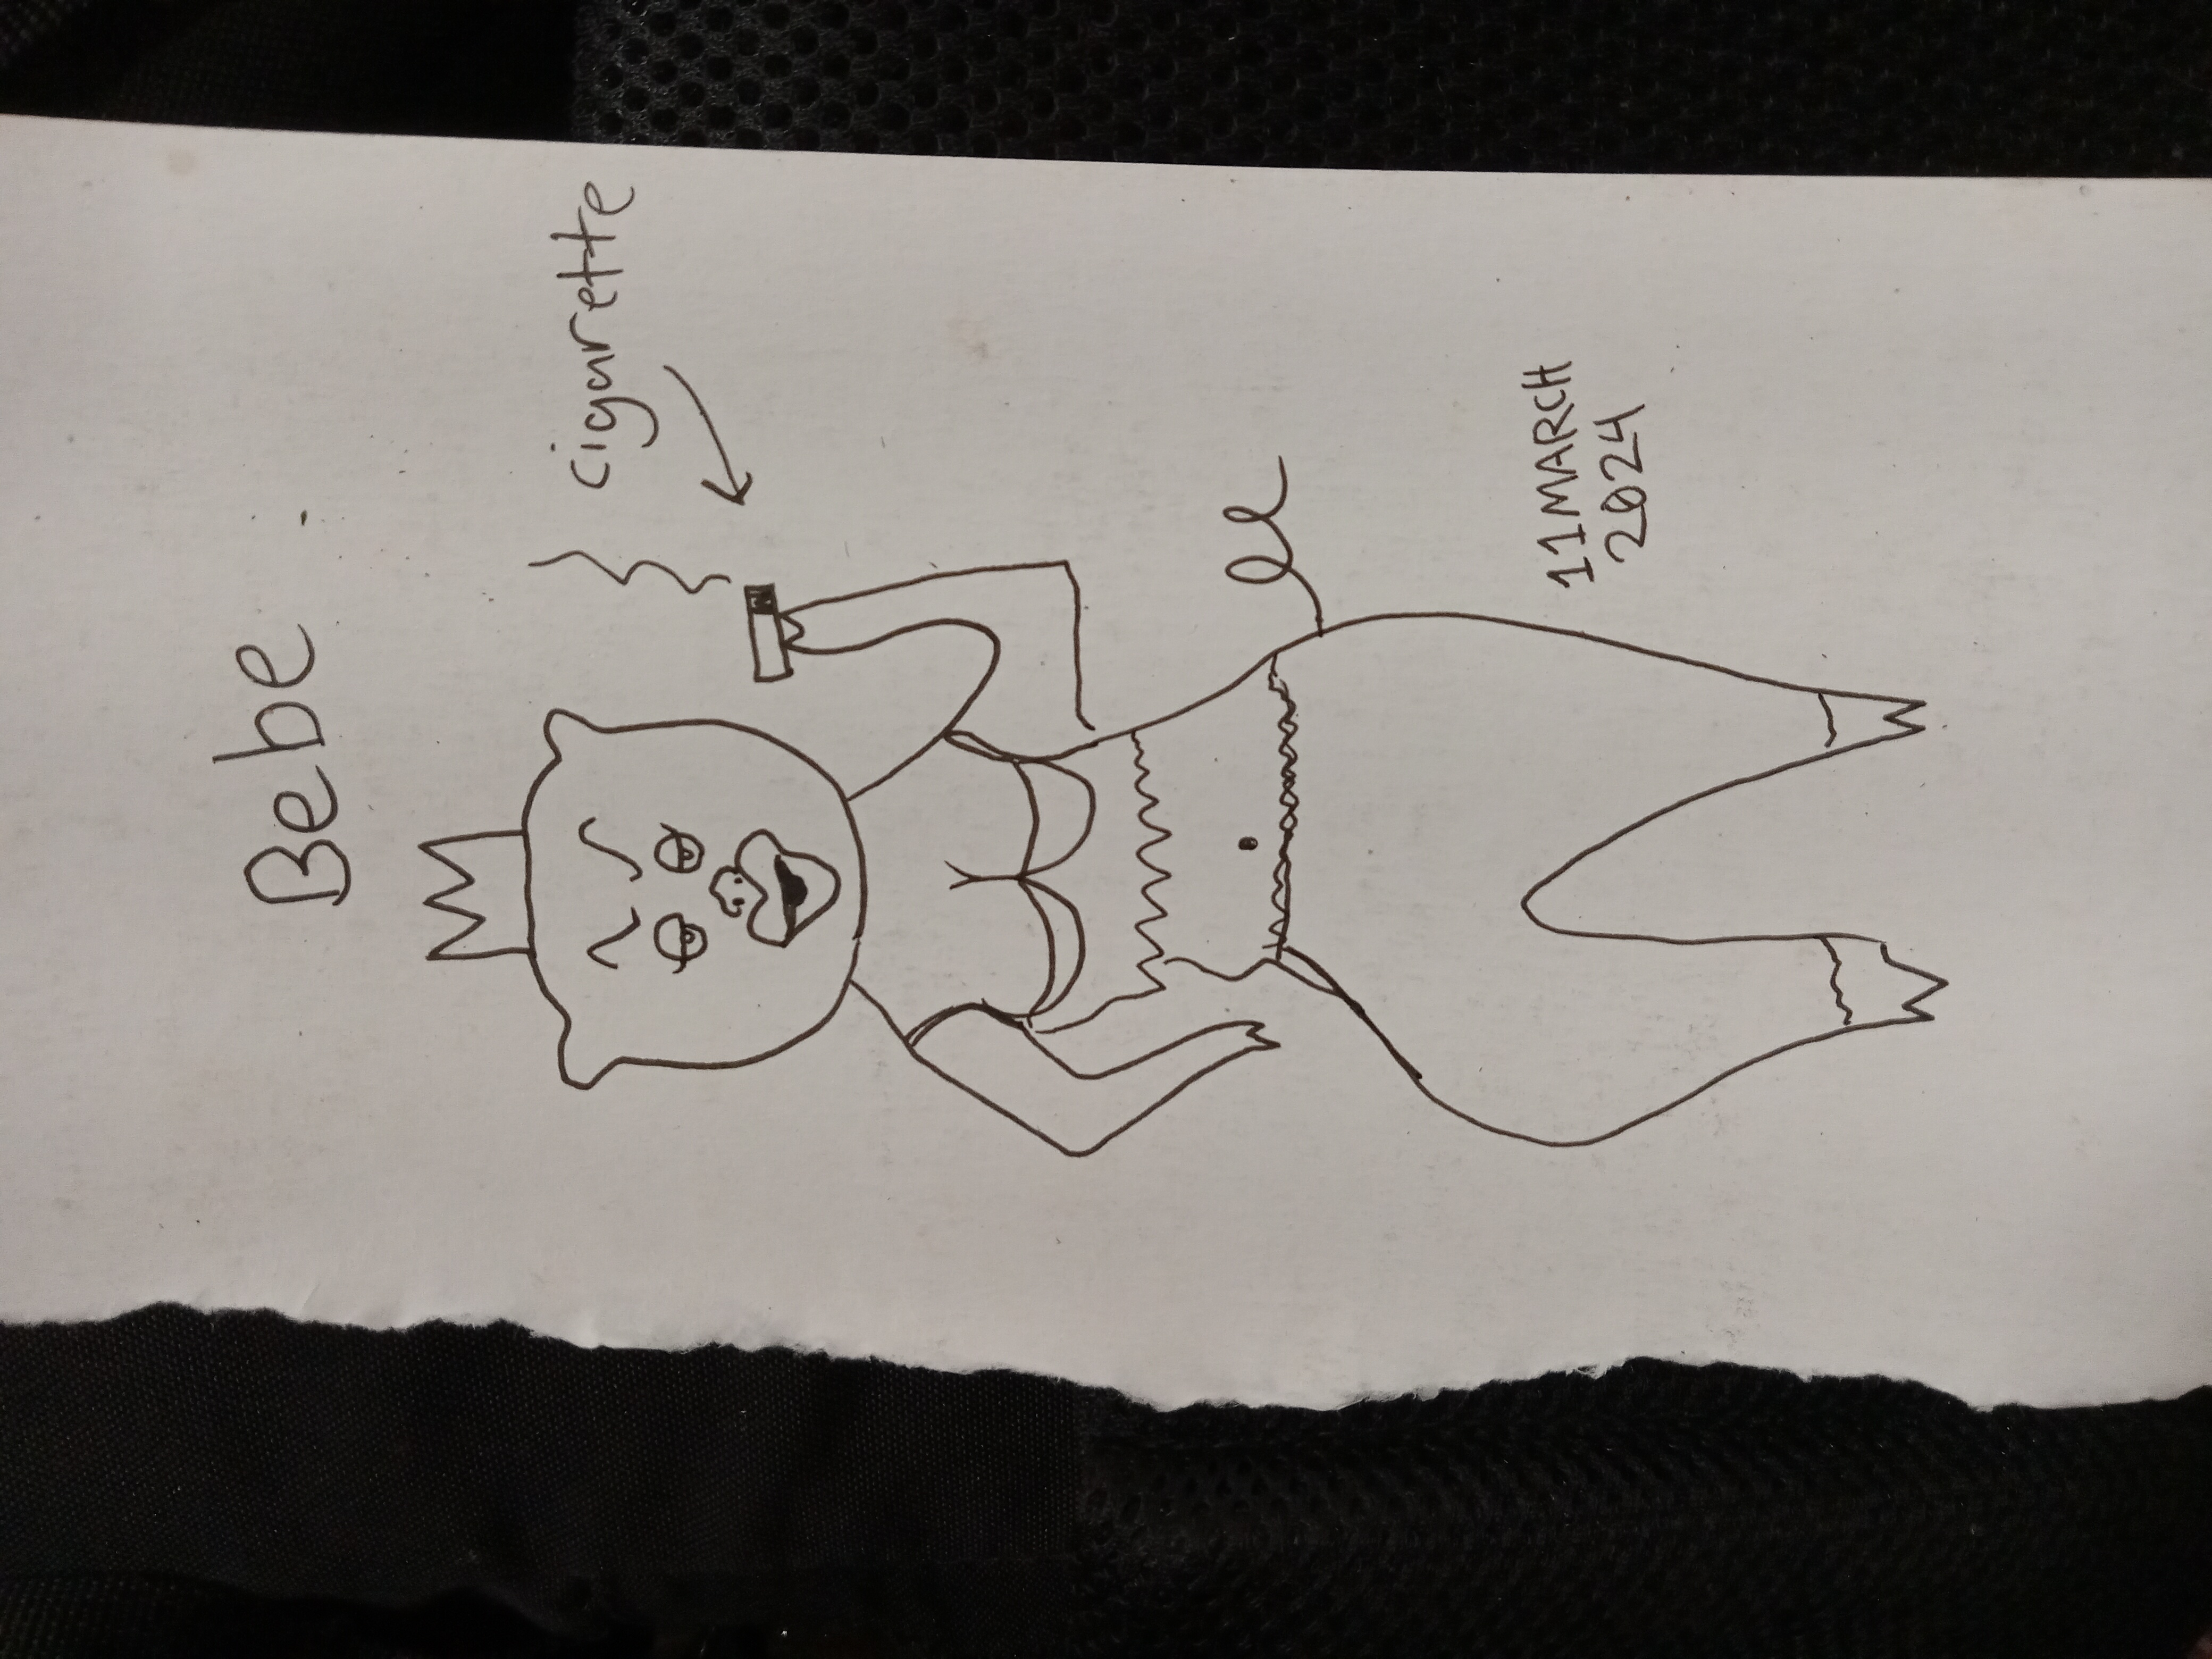 Bebe
cigarette
11 MARCH
2024